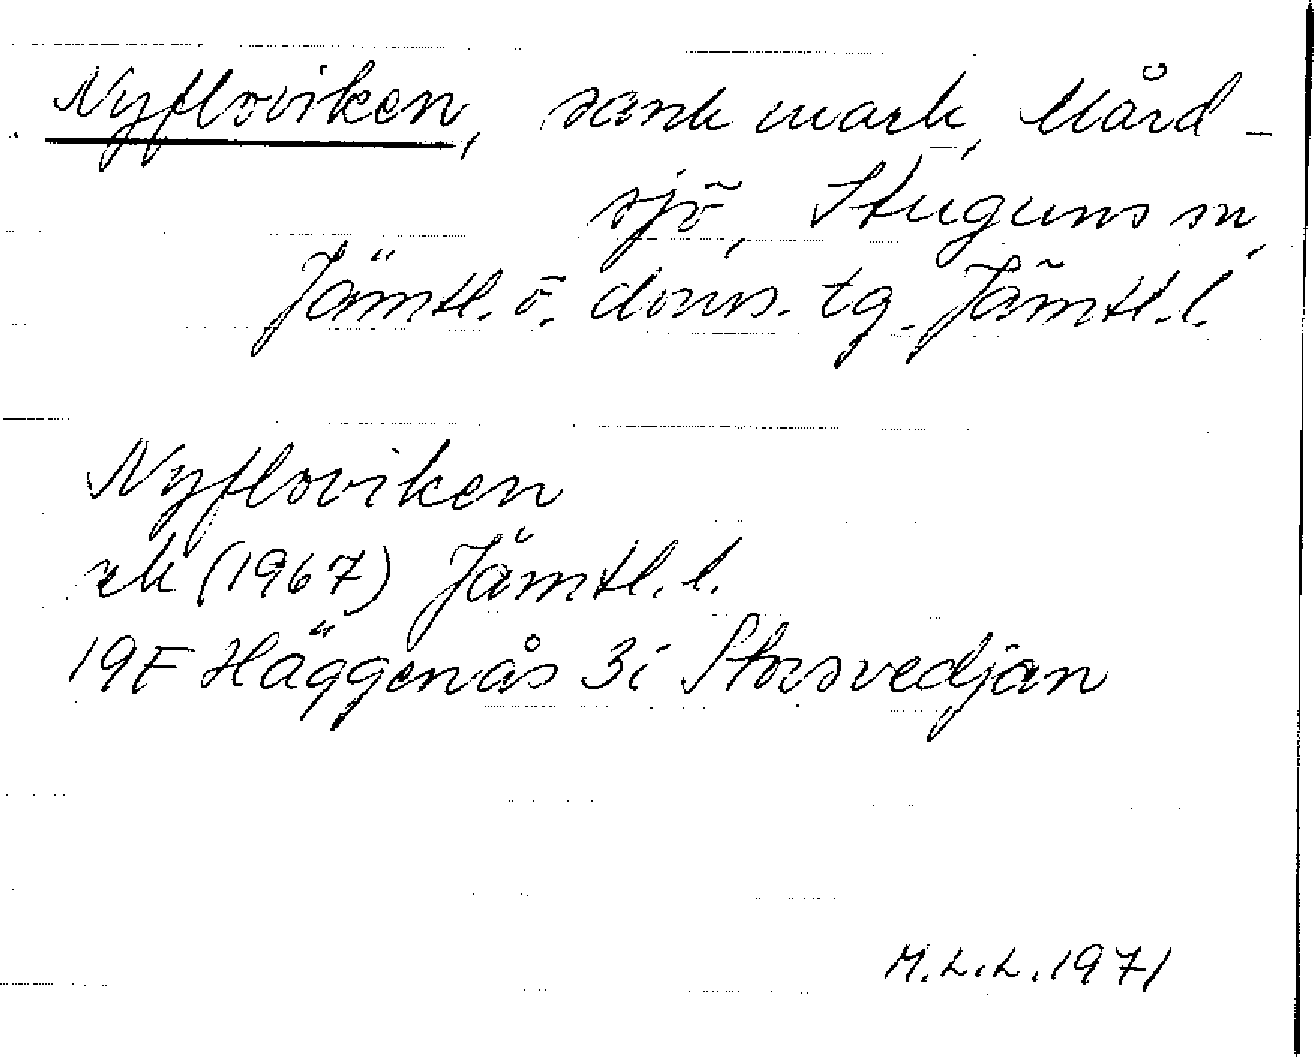 Nyfloviken, sank mark, Mård-
sjö, Stuguns sn,
Jämtl. ö. doms. tg. Jämtl. l.
Nyfloviken
ek (1967) Jämtl. l.
19F Häggenås 3i Storsvedjan
M.L.L. 1971